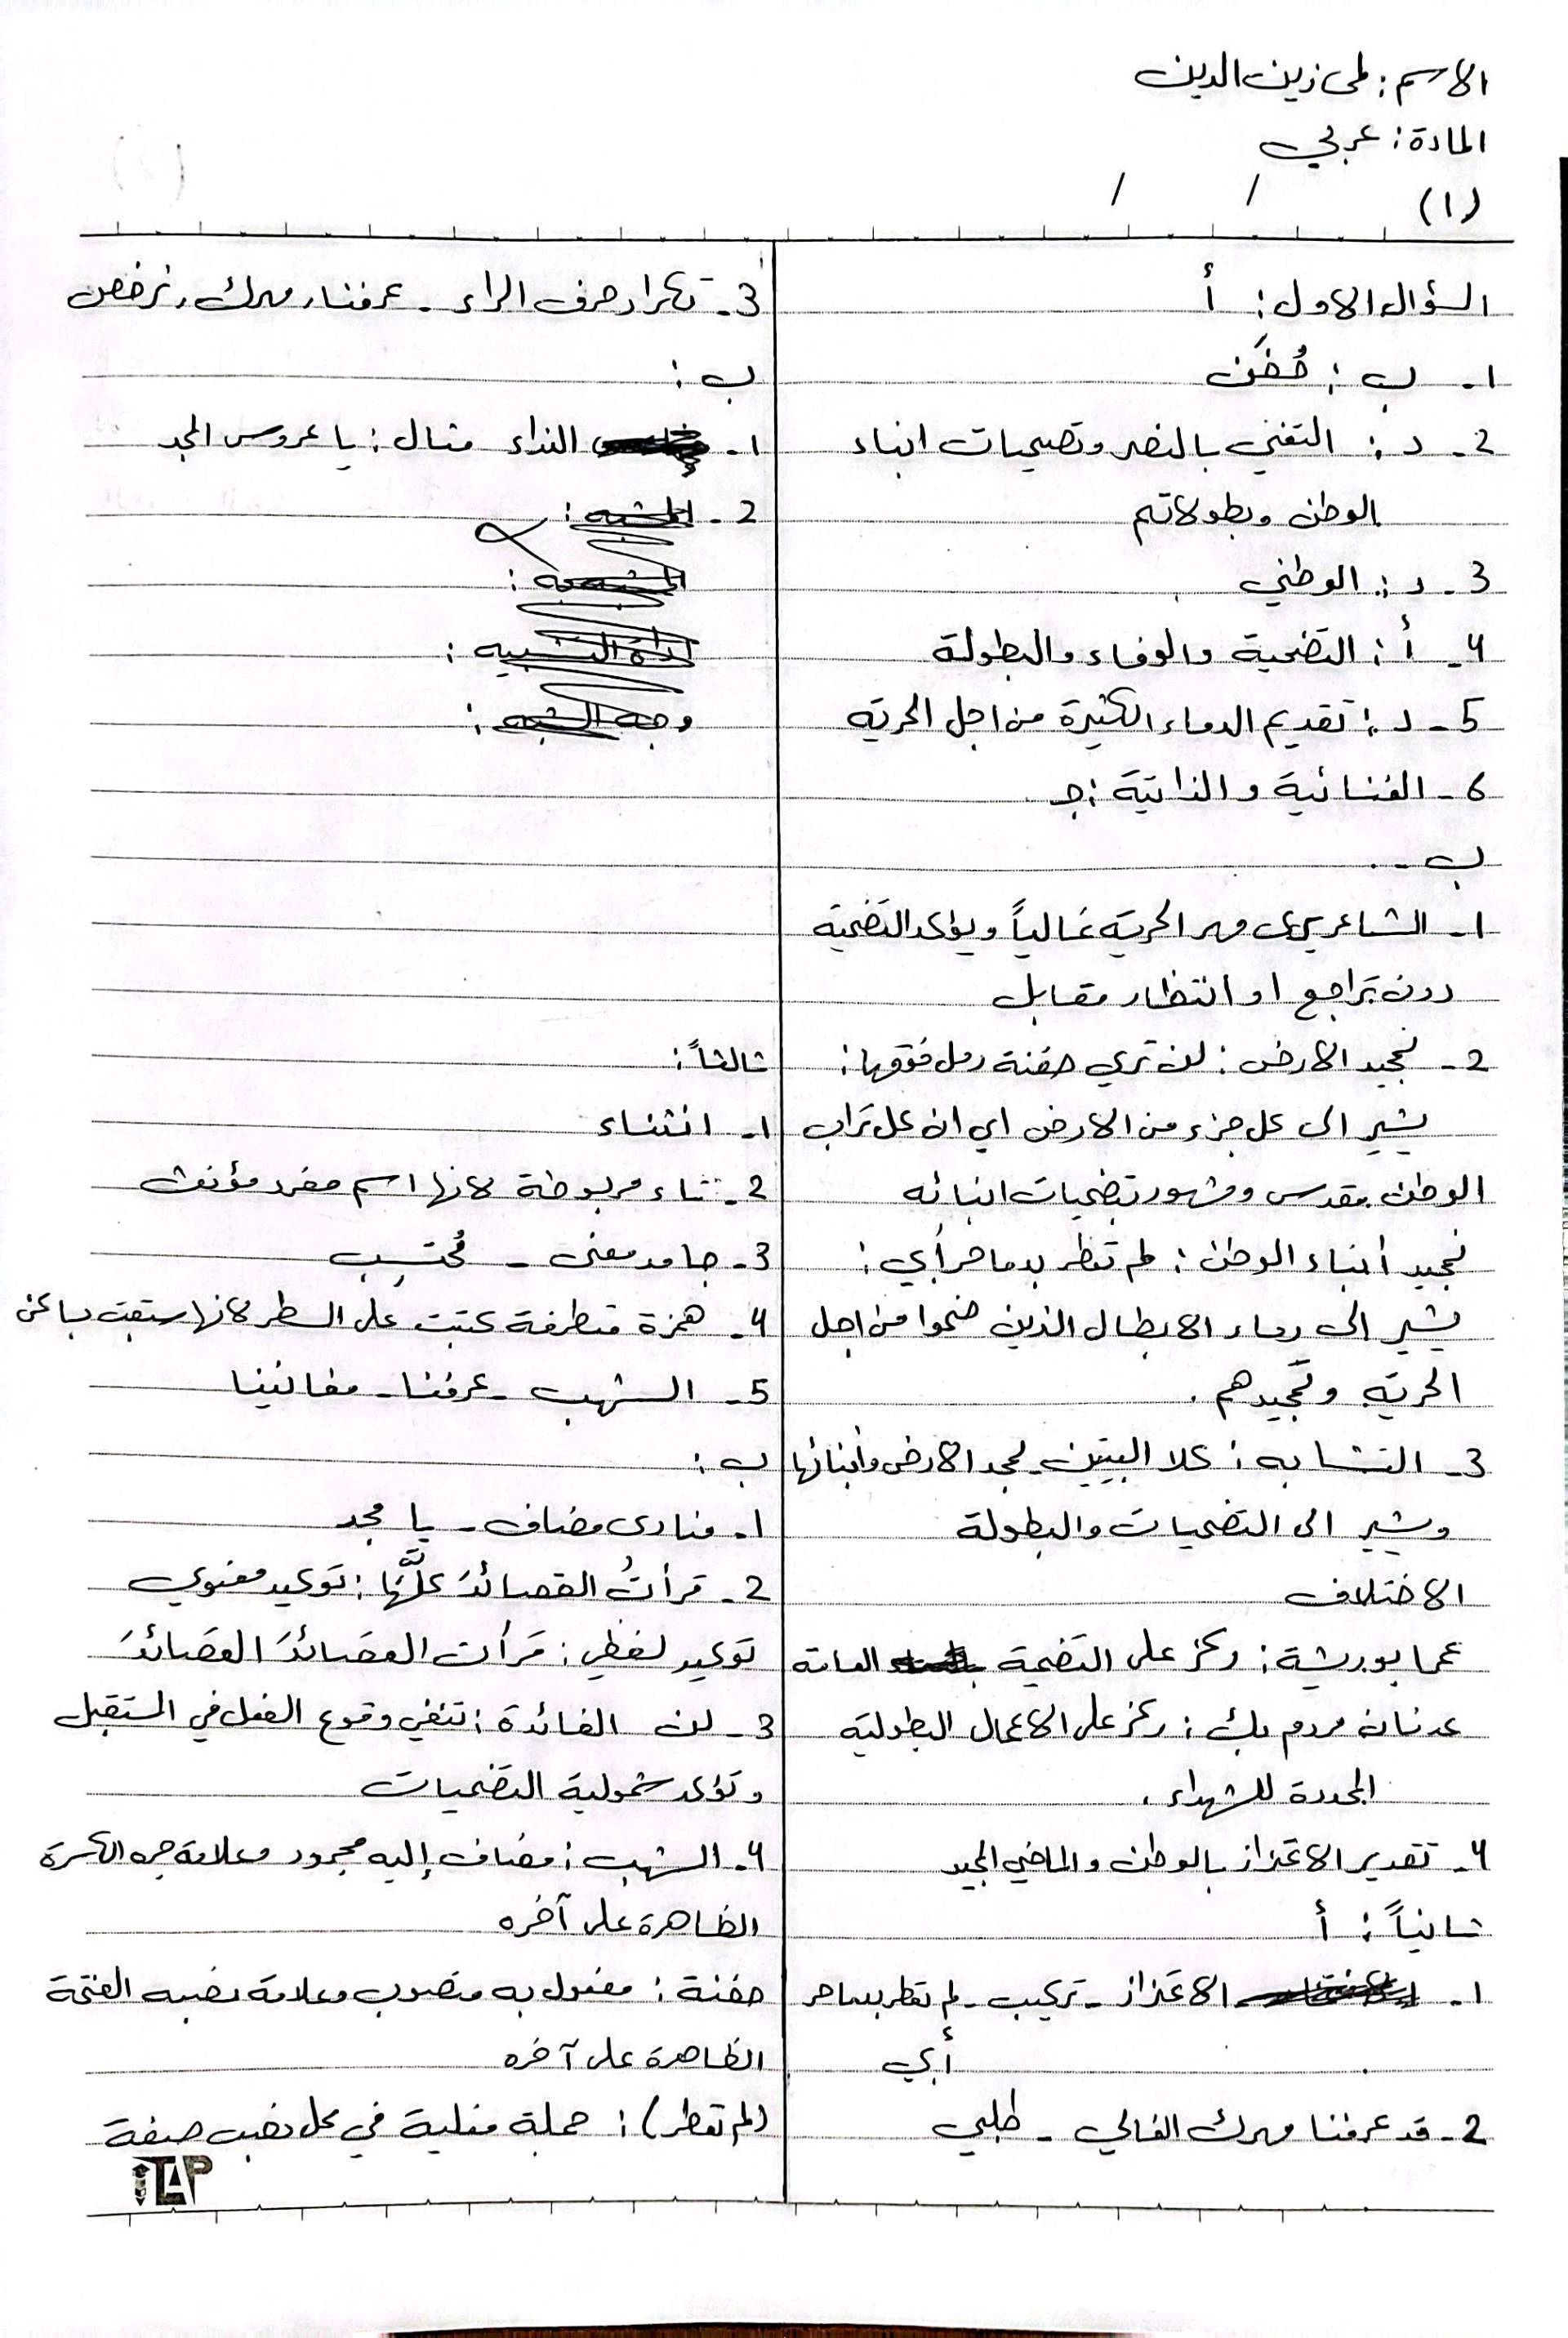 الاسم: لمى زين الدين
المادة: عربي
(١) / /
السؤال الاول: أ
١- ب: حُضَن
2- د: التغني بالنصر وتضحيات ابناء
الوطن وبطولاتهم
3- د: الوطني
٤- أ: التضحية والوفاء والبطولة
5- د: تقديم الدماء الكثيرة من اجل الحرية
6- الغنائية والذاتية: جـ
ب -
١- الشاعر يرى مهر الحرية غالياً ويؤكد التضحية
دون تراجع او انتظار مقابل
2- تمجيد الارض: لن تري حفنة رمل فوقها:
يشير الى كل جزء من الارض اي ان كل تراب
الوطن مقدس ومشهور بتضحيات ابنائه
تمجيد أبناء الوطن: لم تعطر بدما حر أبي:
يشير الى دماء الابطال الذين ضحوا من اجل
الحرية وتمجيدهم.
3- التشابه: كلا البيتين لمجد الارض وأبنائها
وشير الى التضحيات والبطولة
الاختلاف
عمر ابو ريشة: ركز على التضحية العامة
عدنان مردم بك: ركز على الاعمال البطولية
المحددة للشهداء.
٤- تقدير الاعتزاز بالوطن والماضي المجيد
ثانياً: أ
١- الاعتزاز - تركيب - لم تعطر بدما حر
أبي
2- قد عرفنا مهرك الغالي - طلبي
3- تكرار حرف الراء - عرفنا، مهرك، نرخص
ب:
١- النداء مثال: يا عروس المجد
2-
ثالثاً:
١- انثناء
2- تاء مربوطة لانها اسم مفرد مؤنث
3- جامد معنى - مُحتسِب
٤- همزة متطرفة كتبت على السطر لانها سبقت بساكن
5- الشهب - عرفنا - مغانينا
ب:
١- منادى مضاف - يا مجد
2- قرأتُ القصائدَ كلَّها: توكيد معنوي
توكيد لفظي: قرأت القصائدَ القصائدَ
3- لن الفائدة: تنفي وقوع الفعل في المستقبل
وتؤكد شمولية التضحيات
٤- الشهب: مضاف إليه مجرور وعلامة جره الكسرة
الظاهرة على آخره
حفنة: مفعول به منصوب وعلامة نصبه الفتحة
الظاهرة على آخره
(لم تعطر): جملة فعلية في محل نصب صفة
iTAP